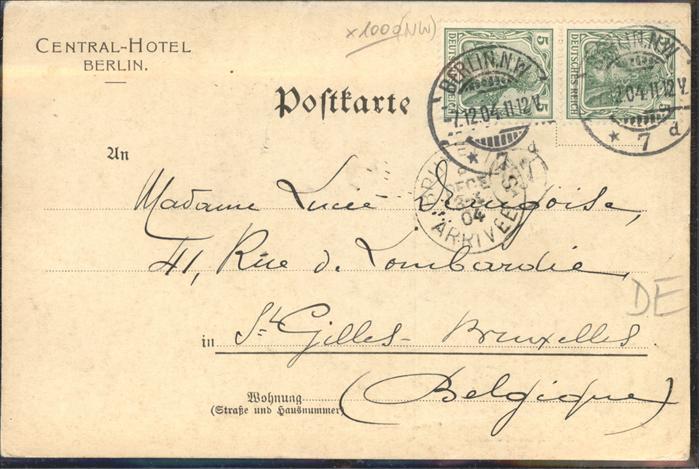 x1000(NW)
CENTRAL-HOTEL
BERLIN.
5 5
DEUTSCHES REICH DEUTSCHES REICH
BERLIN.N.W. BERLIN.N.W.
7.12.04.11-12V. 12.04.11-12V.
* 7 d * 7 d
Postkarte
An
DECE
04
ARRIVEE
Madame Lucie
41, Rue de Lombardie,
DE
in St Gilles-Bruxelles.
Wohnung
(Straße und Hausnummer)
(Belgique)